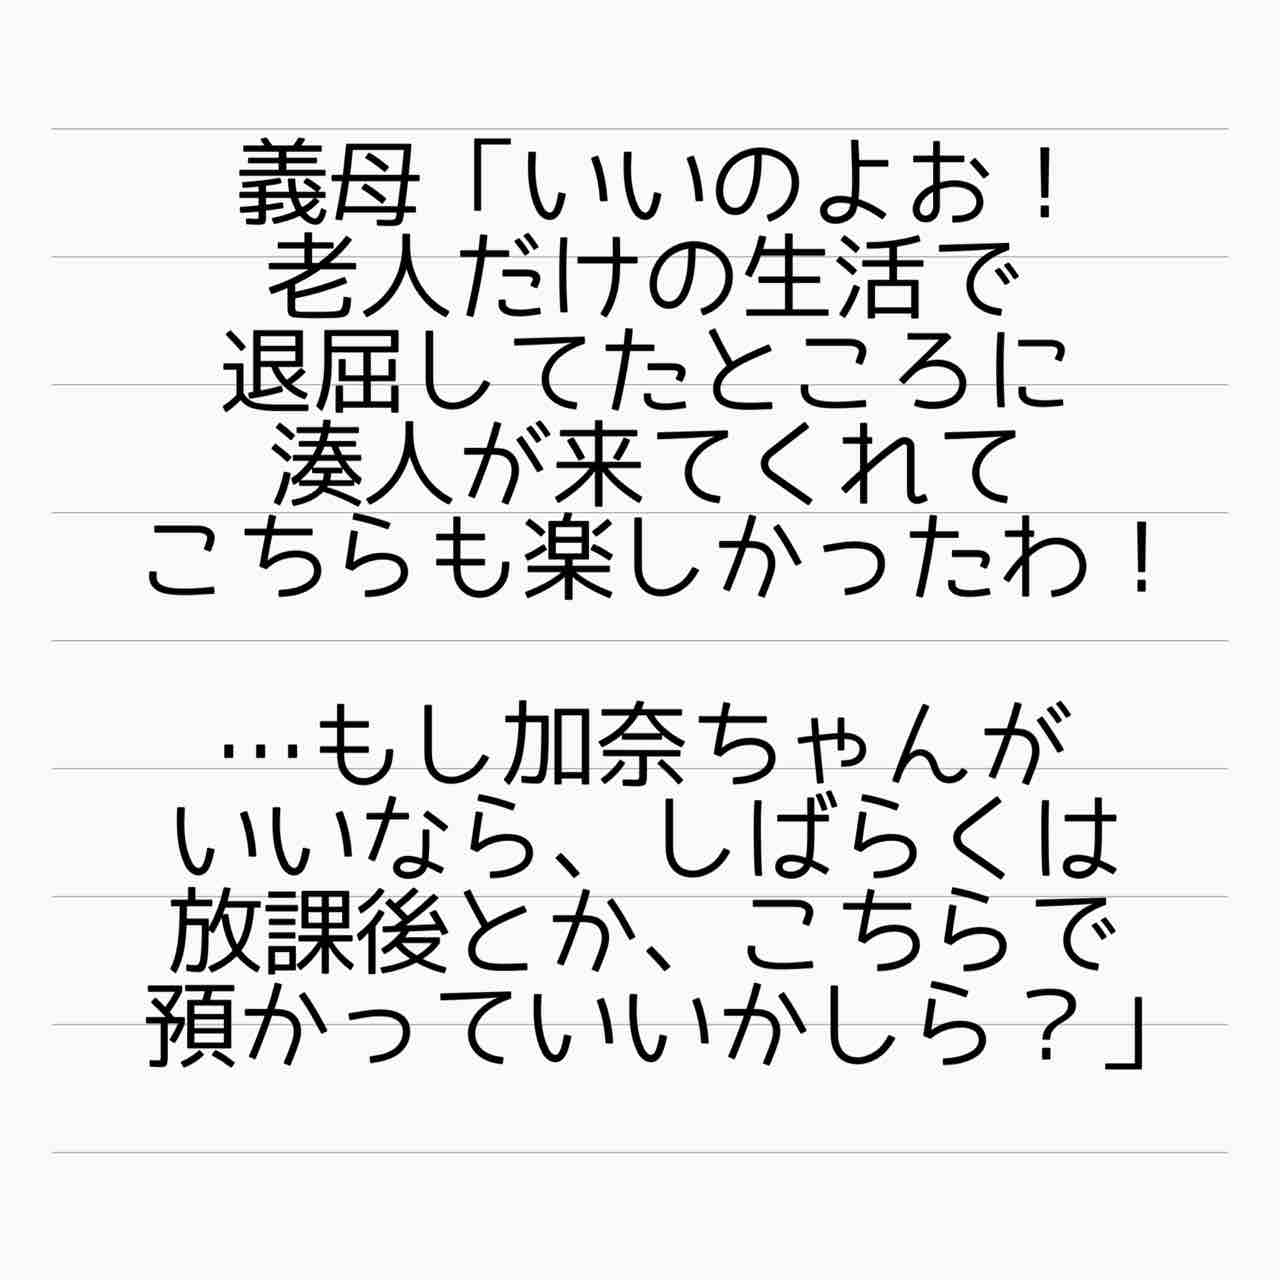 義母「いいのよお！
老人だけの生活で
退屈してたところに
湊人が来てくれて
こちらも楽しかったわ！
…もし加奈ちゃんが
いいなら、しばらくは
放課後とか、こちらで
預かっていいかしら？」